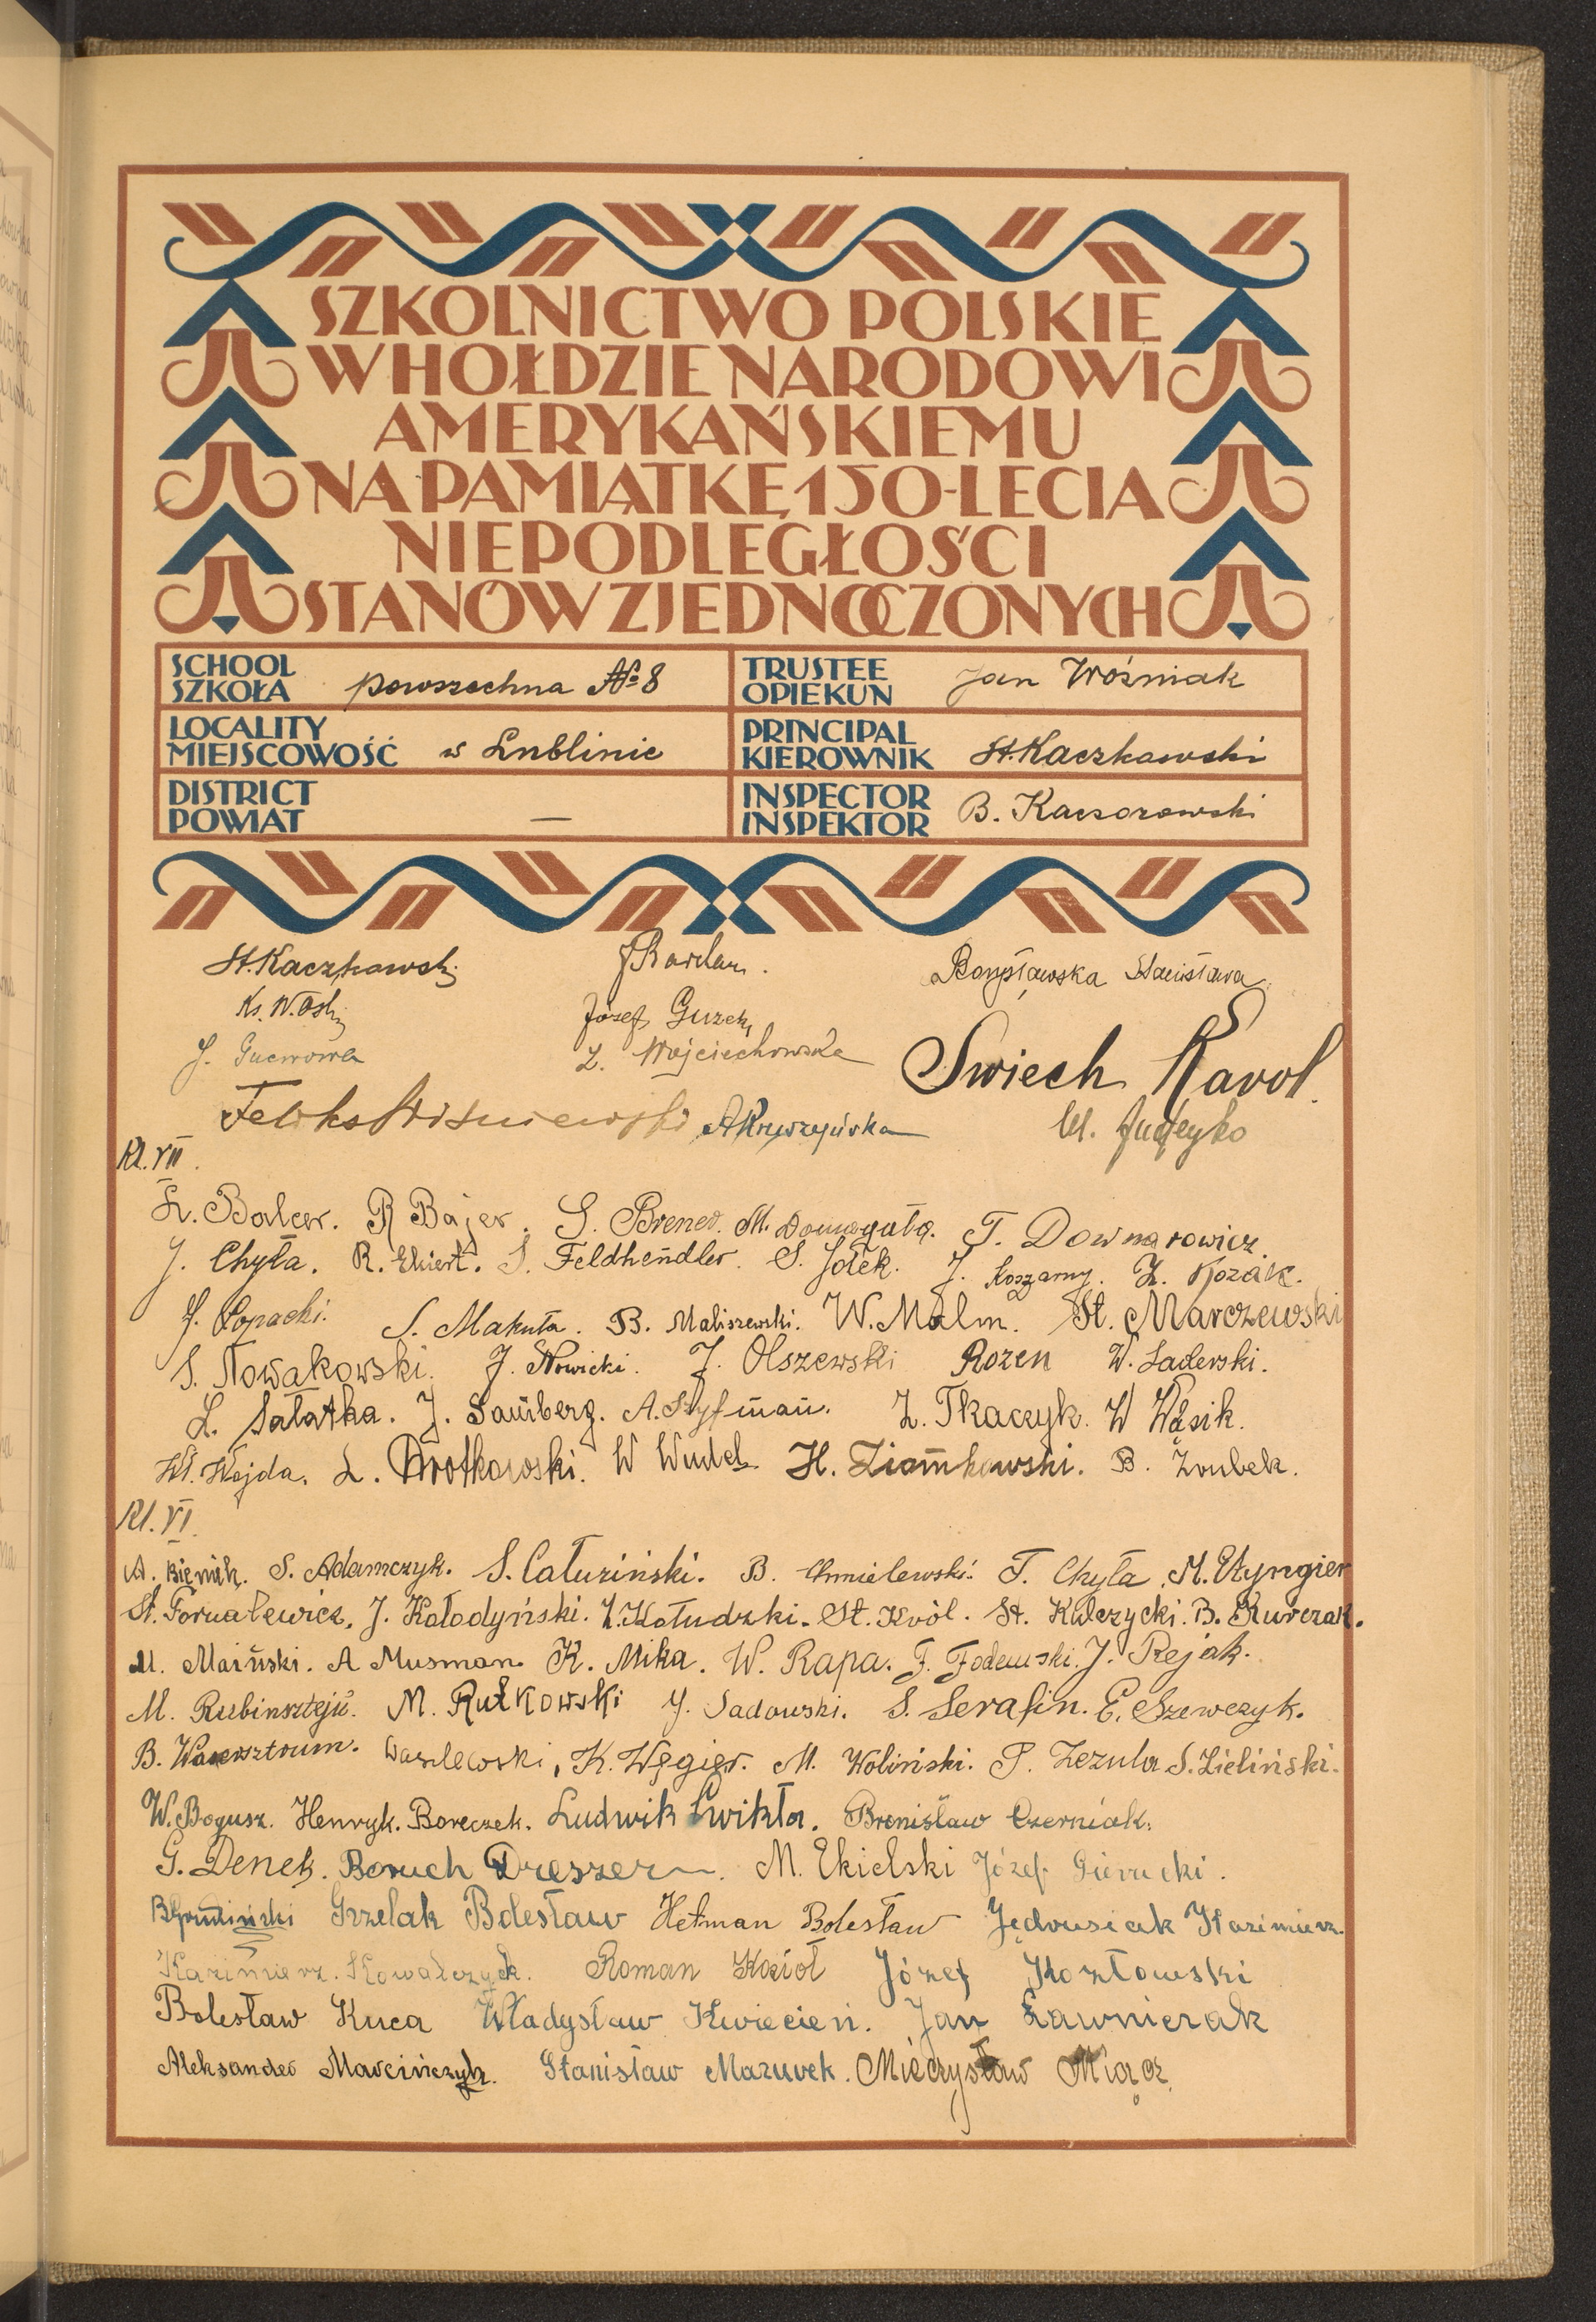 SZKOLNICTWO POLSKIE
W HOŁDZIE NARODOWI
AMERYKAŃSKIEMU
NA PAMIĄTKĘ 150-LECIA
NIEPODLEGŁOŚCI
STANÓW ZJEDNOCZONYCH
SCHOOL
SZKOŁA powszechna № 8
TRUSTEE
OPIEKUN Jan Woźniak
LOCALITY
MIEJSCOWOŚĆ w Lublinie
PRINCIPAL
KIEROWNIK St. Kaczkowski
DISTRICT
POWIAT —
INSPECTOR
INSPEKTOR B. Kaczorowski
St. Kaczkowski J Bardan. Stanisława
Ks. W. Józef Guzek
J. Z. Wojciechowska Swiech Karol.
Feliks Wiszniewski A Krzyszyńska Wl.
Kl. VII.
Z. Balcer. R Bajer. S. Brener. M. Domagała. T. Downarowicz.
J. Chyła. R. Ekiert. S. Feldhendler. S. Jołek. J. Koszarny. Z. Kozak.
J. Łopacki. S. Makuła. B. Maliszewski. W. Malm. St. Marczewski
S. Nowakowski. J. Nowicki. J. Olszewski Rozen W. Saderski.
L. Sałatka. J. Samberg. A. Szyfman. Z. Tkaczyk. W Wąsik.
Wł. Wojda. L. Wrotkowski. W Wudel. H. Ziomkowski. B. Zoubek.
Kl. VI.
A. Bieniek. S. Adamczyk. S. Całuziński. B. Chmielewski. T. Chyła. M. Etyngier
St. Fornalewicz, J. Kołodyński. Z. Kołudzki. St. Król. St. Kulczycki. B. Kurczak.
M. Maiński. A Musman. K. Mika. W. Rapa. F. J. Rejak.
M. Rubinsztejn. M. Rutkowski J. Sadowski. S. Serafin. E. Szewczyk.
B. Wasersztrum. Wasilewski, K. Węgier. M. Woliński. P. Zezula S. Zieliński.
W. Bogusz. Henryk. Boreczek. Ludwik Ćwikła. Bronisław Czerniak.
G. Denek. Boruch Dreszer. M. Ekielski Józef Gierucki.
B Grudziński Grzelak Bolesław Hetman Bolesław Jędrusiak Kazimierz.
Kazimierz. Kowalczyk. Roman Kozioł Józef Kozłowski
Bolesław Kuca Władysław Kwiecień. Jan Ławniczak
Aleksander Marcińczyk. Stanisław Mazurek. Mieczysław Miącz